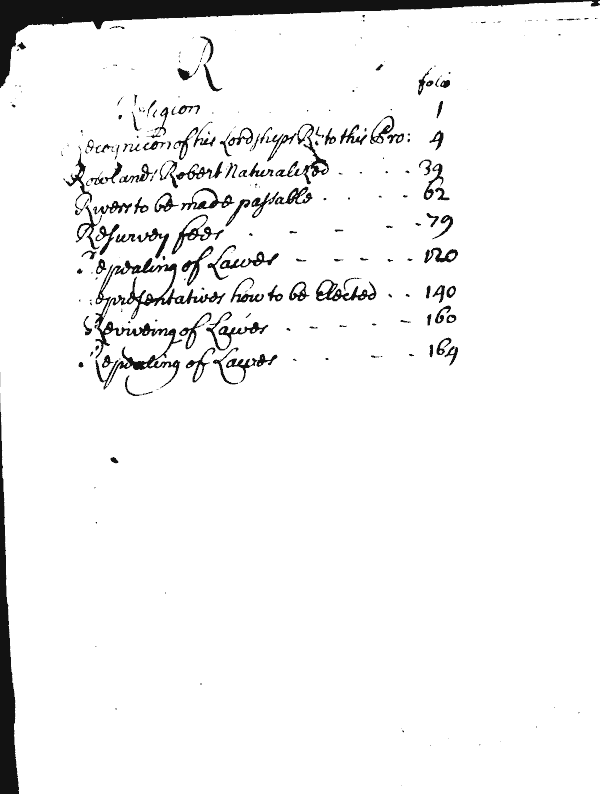 R
folio
Religion 1
Recognicon of his Lordships Rt. to this Pro: 4
Rowlands Robert Naturalized . . . . 39
Rivers to be made passable . . . . 62
Resurvey fees . - - - - 79
Repealing of Lawes - - - - . 120
Representatives how to be Elected . . 140
Reviveing of Lawes . - - . - 160
Repealing of Lawes . . - . 164